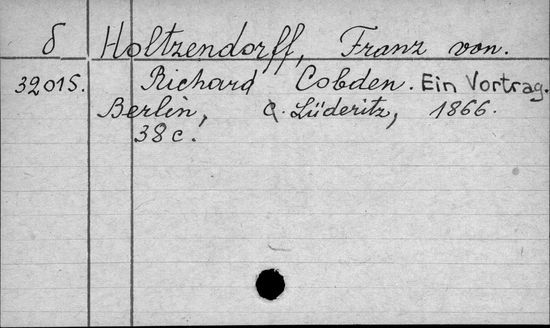 δ Holtzendorff, Franz von.
32015. Richard Cobden. Ein Vortrag.
Berlin, C. Lüderitz, 1866.
38 c.